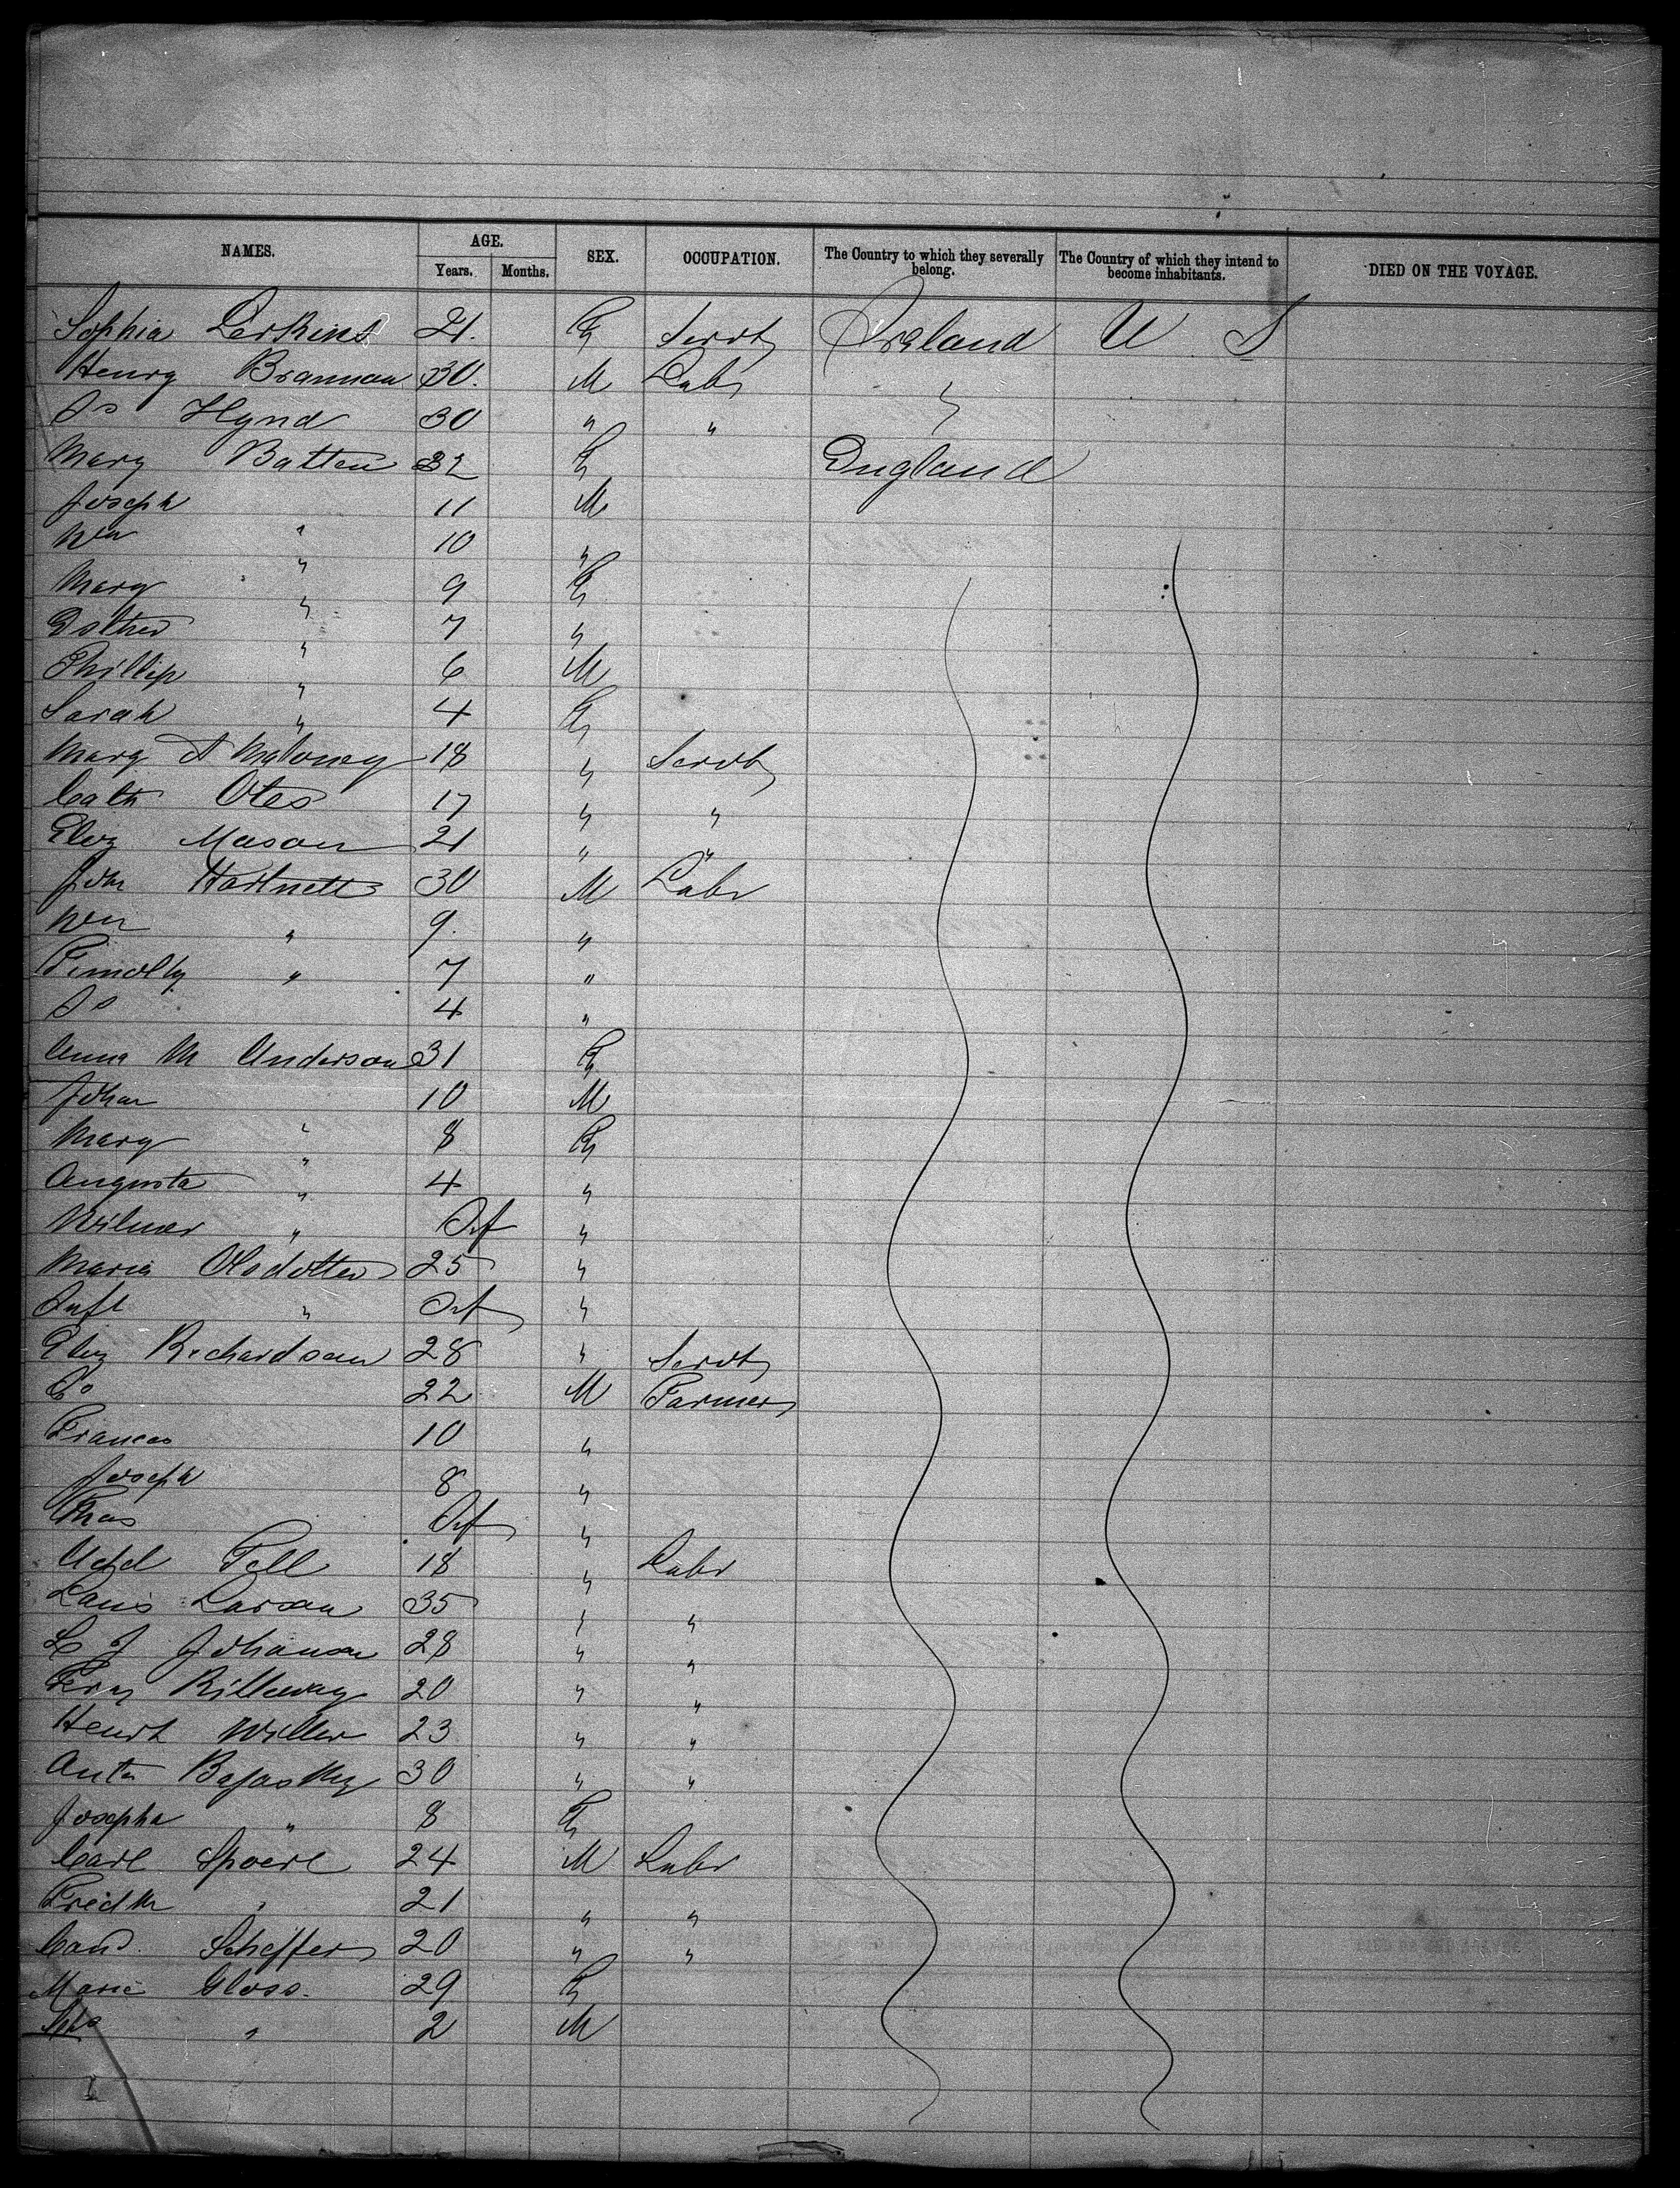 NAMES. AGE. SEX. OCCUPATION. The Country to which they severally belong. The Country of which they intend to become inhabitants. DIED ON THE VOYAGE.
Years. Months.
Sophia 21. F Servt Ireland U S
Henry Brannan 30. M Labr "
Hynd 30 " "
Mary Batten 32 F England
Joseph 11 M
Wm " 10 "
Mary " 9 F
Esther " 7 "
Phillip " 6 M
Sarah " 4 F
Mary A Maloney 18 " Servt
Cath Otes 17 " "
Eliz Mason 21 " "
John Hartnett 30 M Labr
Wm " 9. "
Timothy " 7 "
4 "
Anna M Anderson 31 F
Johan 10 M
Mary " 8 F
Augusta " 4 "
" Inf "
Maria Olsdotter 25 "
Inft " Inf "
Eliz Richardson 28 " Servt
22 M Farmer
Frances 10 "
Joseph 8 "
Thos Inf "
18 " Labr
Larson 35 " "
J Johanson 28 " "
20 " "
23 " "
30 " "
Josepha " 8 F
Carl Spoerl 24 M Labr
" 21 " "
Scheffer 20 " "
Marie Gloss. 29 F
" 2 M